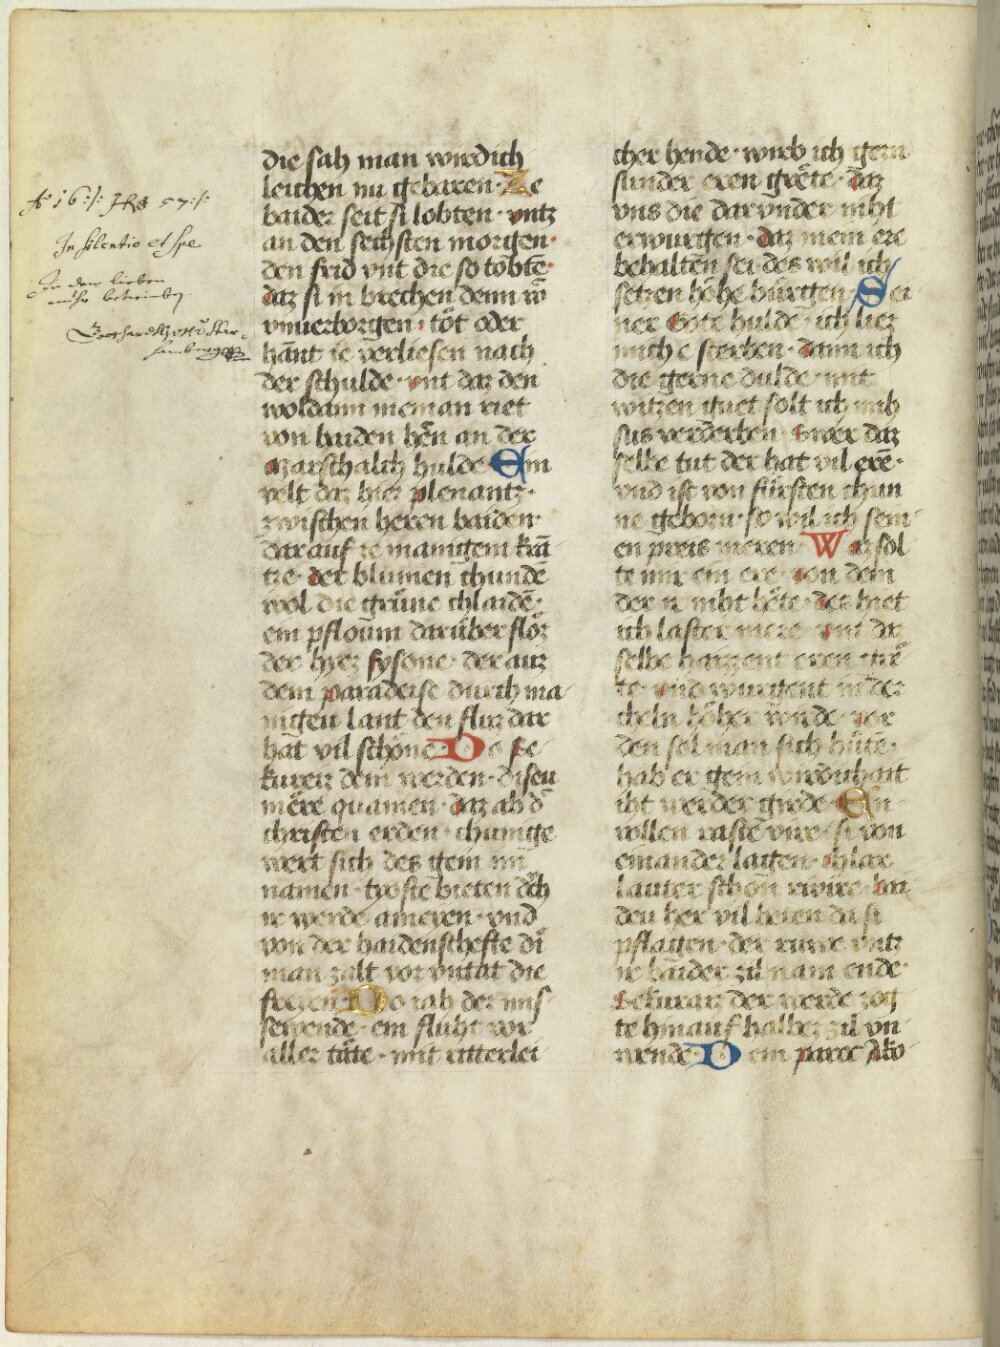 die sah man wirdich
leichen nu gebaren · Ze
baider seit si lobten · vntz
an den sechsten morigen ·
den frid vnt die so tobtē ·
daz si in brechen denn wͦ
vnuerborgen · tot oder
hānt ie verliesen nach
der schulde · vnt daz den
woldann nieman riet
von baiden hēn an der
Marschalch hulde Ein
velt daz hiez plenantz ·
zwischen heren baiden ·
dar auf ze manigem krā
tze · der blumen chundē
wol die grüne chlaidē ·
ein pfloum darüber floz
der hyez fysone · der auz
dem paradeise durch ma
nigeu lant den fluz dar
hat vil schöne · Do se
kureiz dem werden · diseu
mere quamen · daz ab d
christen erden · chunige
wert sich des gein im
namen · troste bieten doch
ir werde ameren · vnd
von der haidenschefte di
man zalt vor vntat die
freien · Do iah der mis
sewende · ein fluht vor
aller täte · mit ritterlei
cher hende · wirb ich gern
sunder eren gräte · daz
vns die dar vnder niht
erwurgen · daz mein ere
behalten sei des wil ich
setzen hohe bürgen · Sei
ner Gote hulde · ich liez
mich e sterben · dann ich
die gerne dulde · mit
witzen guet solt ich mih
sus verderben · swer daz
selbe tut der hat vil erē ·
vnd ist von fürsten chun
ne geborn · so wil ich sein
en preis meren · Waz sol
te mir ein ere · von dem
der ir niht hete · des hiet
ich laster mere · vnt daz
selbe haizzent eren grē
te · vnd wurgent in der
cheln hoher wirde · vor
den sol man sich hüte ·
hab er gein wirdichait
iht werder girde · En
vollen raste vire · si von
einander lagen · chlar
lauter schon rivire · bei
den her vil heren da si
pflagen · der ruwe vntz
ir baider zil nam ende ·
Sekuraiz der werde zog
te hin auf halbez zil vn
wende · Dem parec Ako
A° 16 ·/· Jhs 57 ·/·
In silentio et spe
In dem lieben